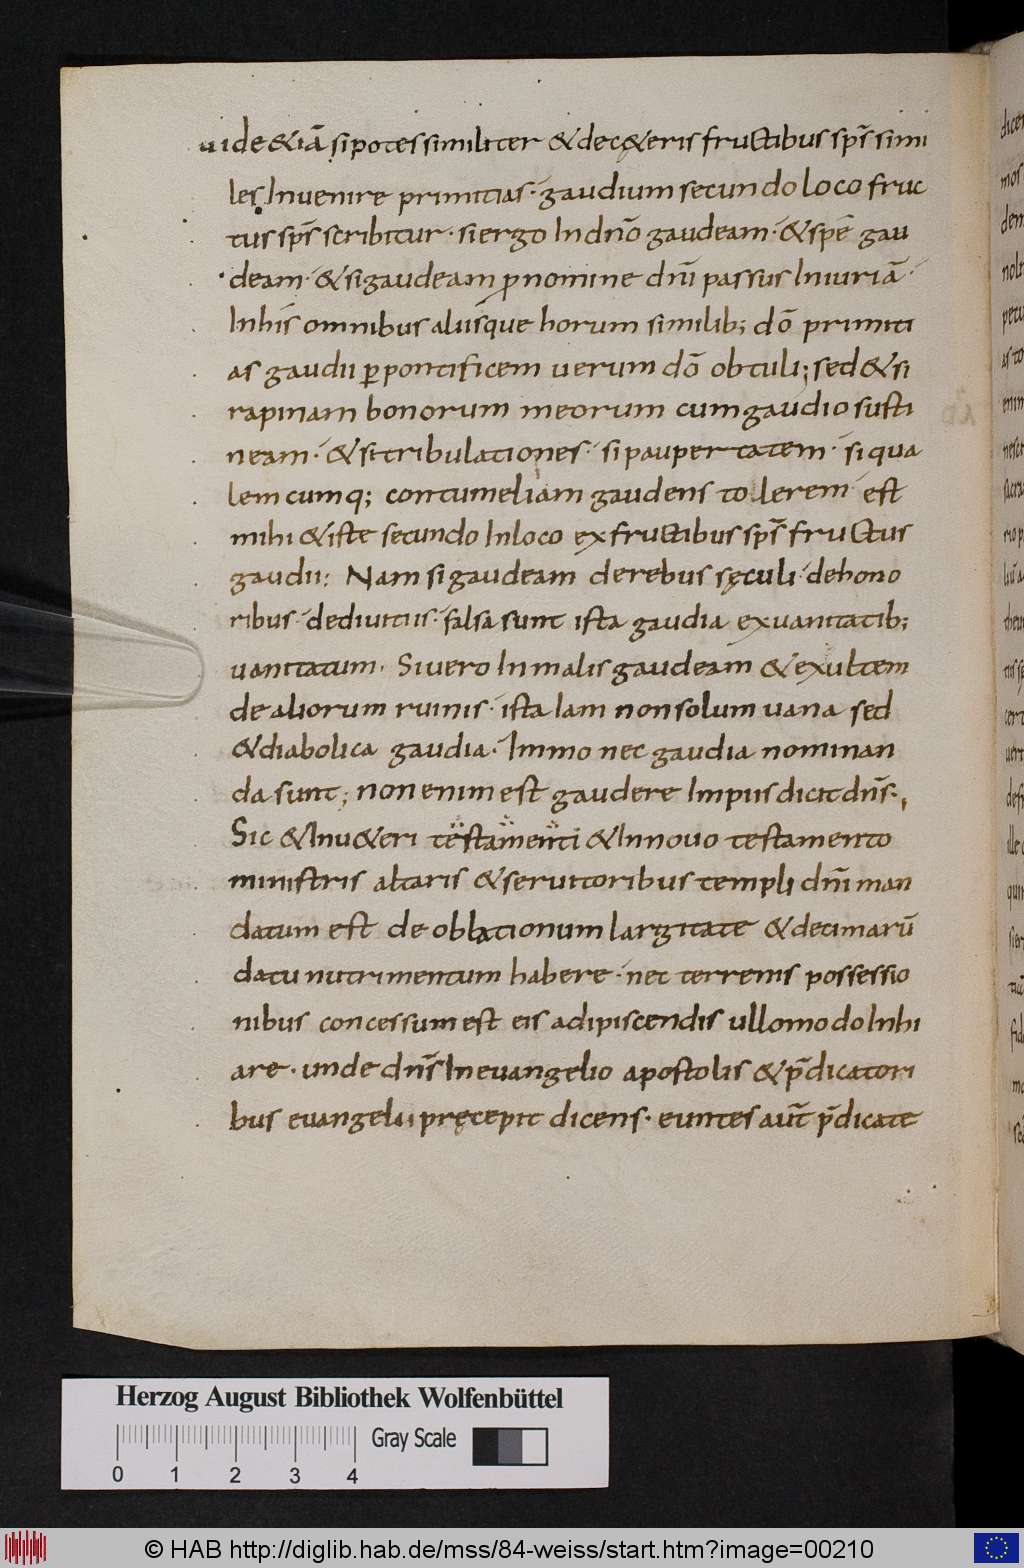 uide &iā si potes similiter & dec&eris fructibus sp̄s simi
les Inuenire primitias · gaudium secundo loco fruc
tus sp̄s scribitur · si ergo In dn̄o gaudeam · & spē gau
deam · & si gaudeam ꝓ nomine dn̄i passus Iniuriā ·
In his omnibus aliisque horum similib; dō primiti
as gaudii ꝑ pontificem uerum dō obtuli; sed & si
rapinam bonorum meorum cum gaudio susti
neam · & si tribulationes · si paupertatem · si qua
lemcumq; contumeliam gaudens tollerem · est
mihi & iste secundo In loco ex fructibus sp̄s fructus
gaudii: Nam si gaudeam de rebus sęculi · de hono
ribus · de diuitiis · falsa sunt ista gaudia ex uanitatib;
uanitatum · Si uero In malis gaudeam & exultem
de aliorum ruinis · ista Iam non solum uana sed
& diabolica gaudia · Immo nec gaudia nominan
da sunt; non enim est gaudere Impiis dicit dn̄s ·,
Sic & In u&eri testamenti & In nouo testamento
ministris altaris & seruitoribus templi dn̄i man
datum est de oblationum largitate & decimarū
datu nutrimentum habere · nec terrenis possessio
nibus concessum est eis adipiscendis ullomodo Inhi
are · unde dn̄s In euangelio apostolis & p̄dicatori
bus euangelii pręcepit dicens · euntes aūt p̄dicate
dicen
mos
dem
nolt
petu
as to
enim
nesci
sacra
rio p
liū a
cert
uert
defi
ille
quin
fid
Herzog August Bibliothek Wolfenbüttel
Gray Scale
0 1 2 3 4
© HAB http://diglib.hab.de/mss/84-weiss/start.htm?image=00210